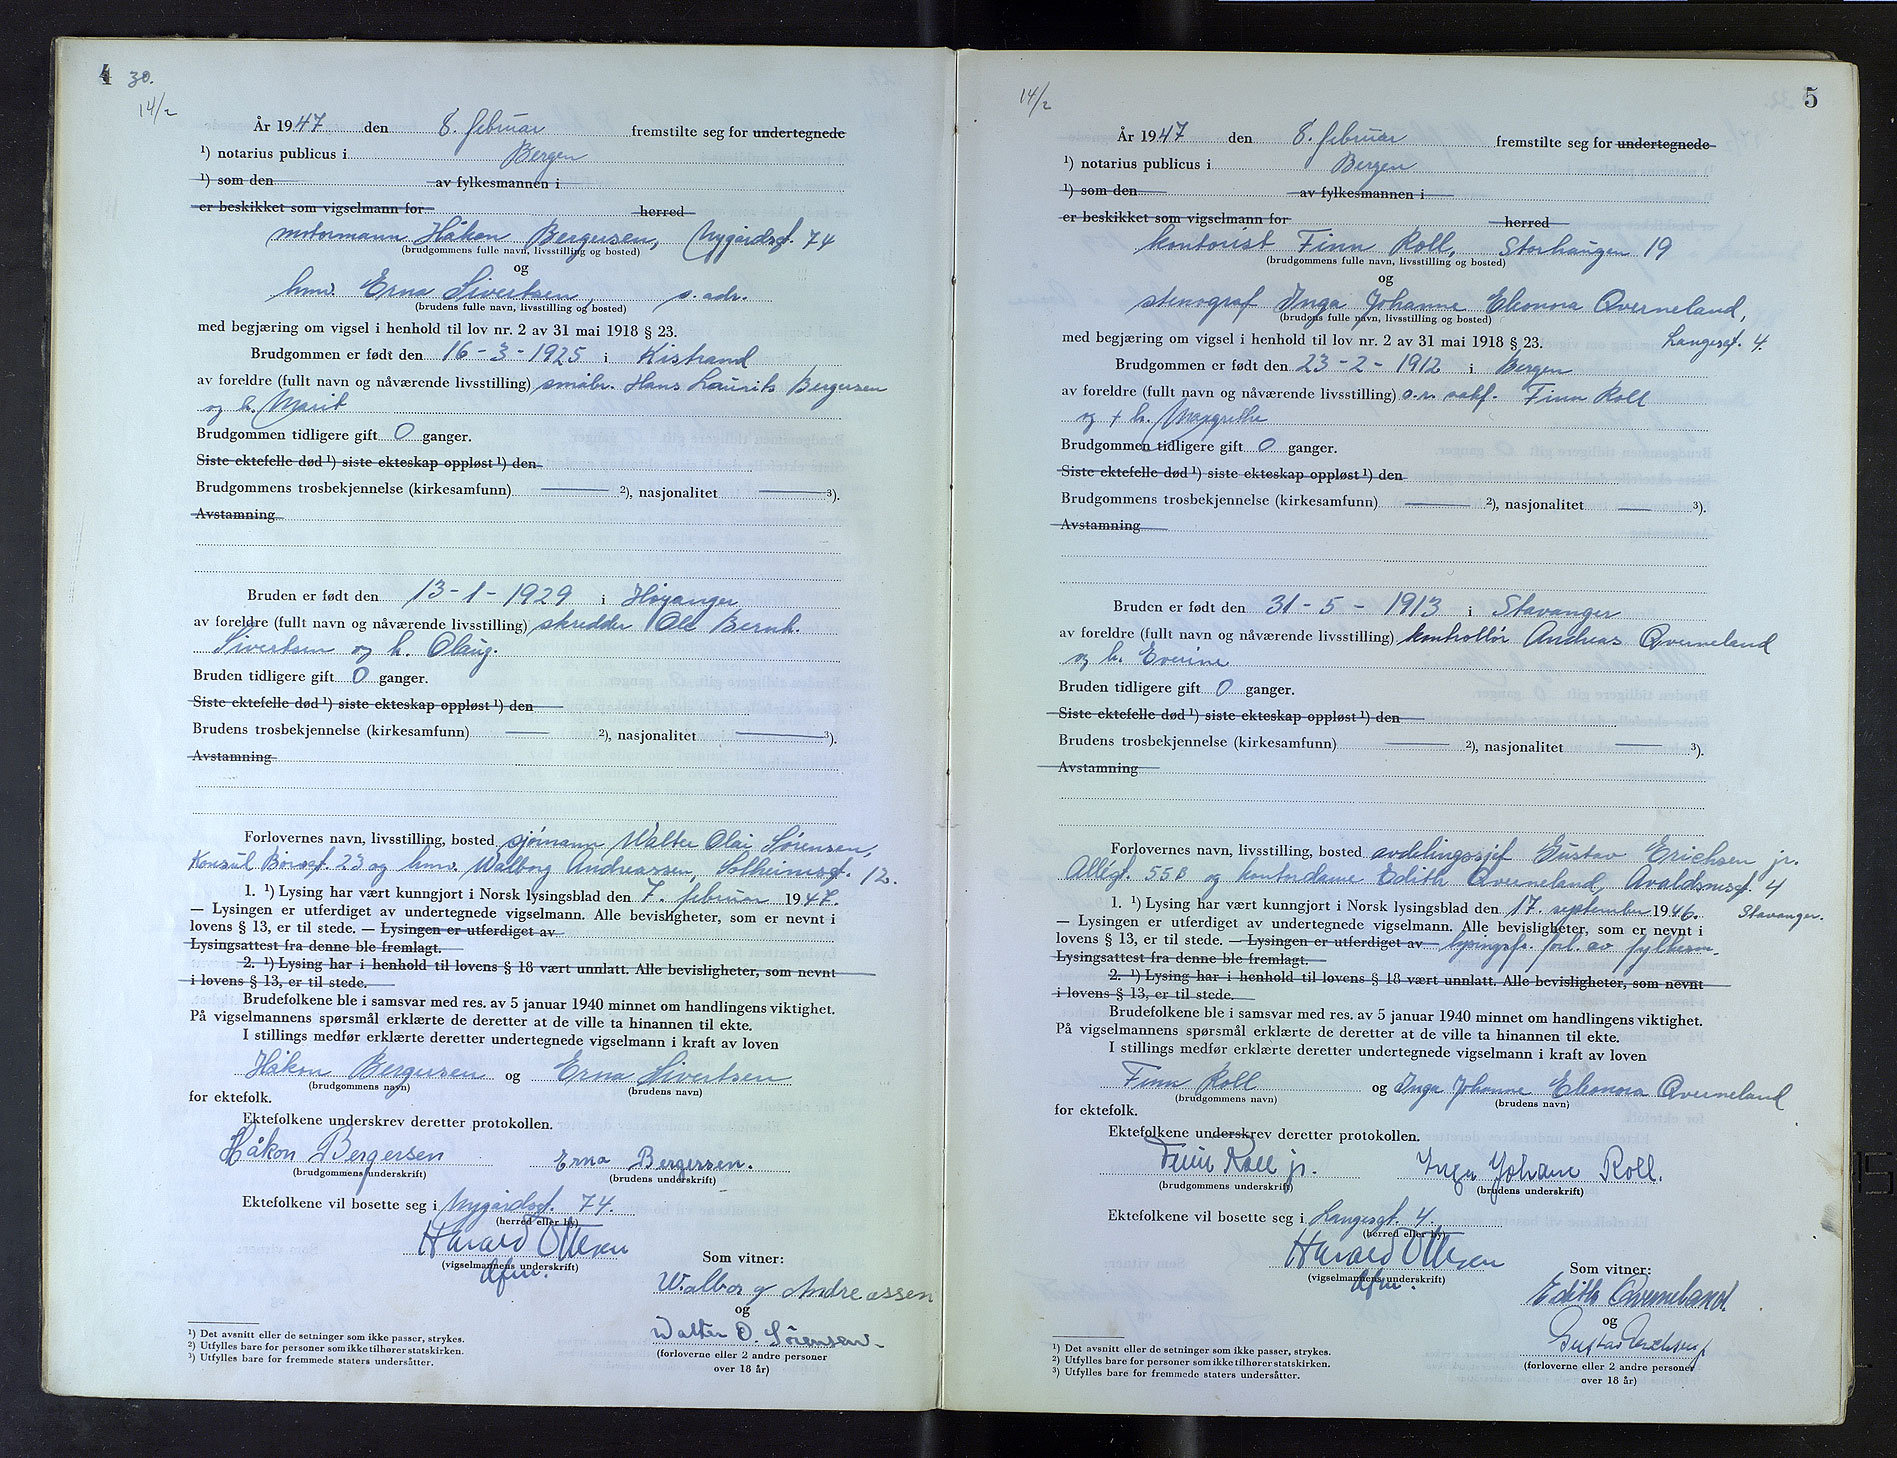 4 30.
14/2
År 1947 den 8. februar fremstilte seg for undertegnede
¹) notarius publicus i Bergen
¹) som den av fylkesmannen i
er beskikket som vigselmann for herred
motormann Håkon Bergersen, Nygårdsgt. 74
(brudgommens fulle navn, livsstilling og bosted)
og
hmv. Erna Sivertsen, s. adr.
(brudens fulle navn, livsstilling og bosted)
med begjæring om vigsel i henhold til lov nr. 2 av 31 mai 1918 § 23.
Brudgommen er født den 16-3-1925 i Kistrand
av foreldre (fullt navn og nåværende livsstilling) småbr. Hans Laurits Bergersen
og h. Marit
Brudgommen tidligere gift 0 ganger.
Siste ektefelle død ¹) siste ekteskap oppløst ¹) den
Brudgommens trosbekjennelse (kirkesamfunn) ²), nasjonalitet ³).
Avstamning
Bruden er født den 13-1-1929 i Høyanger
av foreldre (fullt navn og nåværende livsstilling) skredder Ole Bernh.
Sivertsen og h. Olaug.
Bruden tidligere gift 0 ganger.
Siste ektefelle død ¹) siste ekteskap oppløst ¹) den
Brudens trosbekjennelse (kirkesamfunn) ²), nasjonalitet ³).
Avstamning
Forlovernes navn, livsstilling, bosted sjømann Walter Olai Sørensen,
Konsul Børsgt. 23 og hmv. Walborg Andreassen, Solheimsgt. 12.
1. ¹) Lysing har vært kunngjort i Norsk lysingsblad den 7. februar 1947.
— Lysingen er utferdiget av undertegnede vigselmann. Alle bevisligheter, som er nevnt i
lovens § 13, er til stede. — Lysingen er utferdiget av
Lysingsattest fra denne ble fremlagt.
2. ¹) Lysing har i henhold til lovens § 18 vært unnlatt. Alle bevisligheter, som nevnt
i lovens § 13, er til stede.
Brudefolkene ble i samsvar med res. av 5 januar 1940 minnet om handlingens viktighet.
På vigselmannens spørsmål erklærte de deretter at de ville ta hinannen til ekte.
I stillings medfør erklærte deretter undertegnede vigselmann i kraft av loven
Håkon Bergersen og Erna Sivertsen
(brudgommens navn) (brudens navn)
for ektefolk.
Ektefolkene underskrev deretter protokollen.
Håkon Bergersen Erna Bergersen.
(brudgommens underskrift) (brudens underskrift)
Ektefolkene vil bosette seg i Nygårdsgt. 74.
(herred eller by)
Harald Ottesen
(vigselmannens underskrift)
Som vitner:
Walborg Andreassen
og
Walter O. Sørensen
(forloverne eller 2 andre personer
over 18 år)
¹) Det avsnitt eller de setninger som ikke passer, strykes.
²) Utfylles bare for personer som ikke tilhører statskirken.
³) Utfylles bare for fremmede staters undersåtter.
14/2 5
År 1947 den 8. februar fremstilte seg for undertegnede
¹) notarius publicus i Bergen
¹) som den av fylkesmannen i
er beskikket som vigselmann for herred
kontorist Finn Roll, Storhaugen 19
(brudgommens fulle navn, livsstilling og bosted)
og
stenograf Inga Johanne Eleonora Qverneland,
(brudens fulle navn, livsstilling og bosted)
med begjæring om vigsel i henhold til lov nr. 2 av 31 mai 1918 § 23. Langesgt. 4.
Brudgommen er født den 23-2-1912 i Bergen
av foreldre (fullt navn og nåværende livsstilling) o.r. sakf. Finn Roll
og + h. Margrethe
Brudgommen tidligere gift 0 ganger.
Siste ektefelle død ¹) siste ekteskap oppløst ¹) den
Brudgommens trosbekjennelse (kirkesamfunn) ²), nasjonalitet ³).
Avstamning
Bruden er født den 31-5-1913 i Stavanger
av foreldre (fullt navn og nåværende livsstilling) kontrollør Andreas Qverneland
og h. Everine
Bruden tidligere gift 0 ganger.
Siste ektefelle død ¹) siste ekteskap oppløst ¹) den
Brudens trosbekjennelse (kirkesamfunn) ²), nasjonalitet ³).
Avstamning
Forlovernes navn, livsstilling, bosted avdelingssjef Gustav Erichsen jr.
Allégt. 55B og kontordame Edith Qverneland, Avaldsnesgt. 4
1. ¹) Lysing har vært kunngjort i Norsk lysingsblad den 17. september 1946. Stavanger.
— Lysingen er utferdiget av undertegnede vigselmann. Alle bevisligheter, som er nevnt i
lovens § 13, er til stede. — Lysingen er utferdiget av lysingsfr. forl. av fylkesm.
Lysingsattest fra denne ble fremlagt.
2. ¹) Lysing har i henhold til lovens § 18 vært unnlatt. Alle bevisligheter, som nevnt
i lovens § 13, er til stede.
Brudefolkene ble i samsvar med res. av 5 januar 1940 minnet om handlingens viktighet.
På vigselmannens spørsmål erklærte de deretter at de ville ta hinannen til ekte.
I stillings medfør erklærte deretter undertegnede vigselmann i kraft av loven
Finn Roll og Inga Johanne Eleonora Qverneland
(brudgommens navn) (brudens navn)
for ektefolk.
Ektefolkene underskrev deretter protokollen.
Finn Roll jr. Inga Johane Roll.
(brudgommens underskrift) (brudens underskrift)
Ektefolkene vil bosette seg i Langesgt. 4
(herred eller by)
Harald Ottesen
(vigselmannens underskrift)
Som vitner:
Edith Qverneland.
og
Gustav Erichsen jr
(forloverne eller 2 andre personer
over 18 år)
¹) Det avsnitt eller de setninger som ikke passer, strykes.
²) Utfylles bare for personer som ikke tilhører statskirken.
³) Utfylles bare for fremmede staters undersåtter.